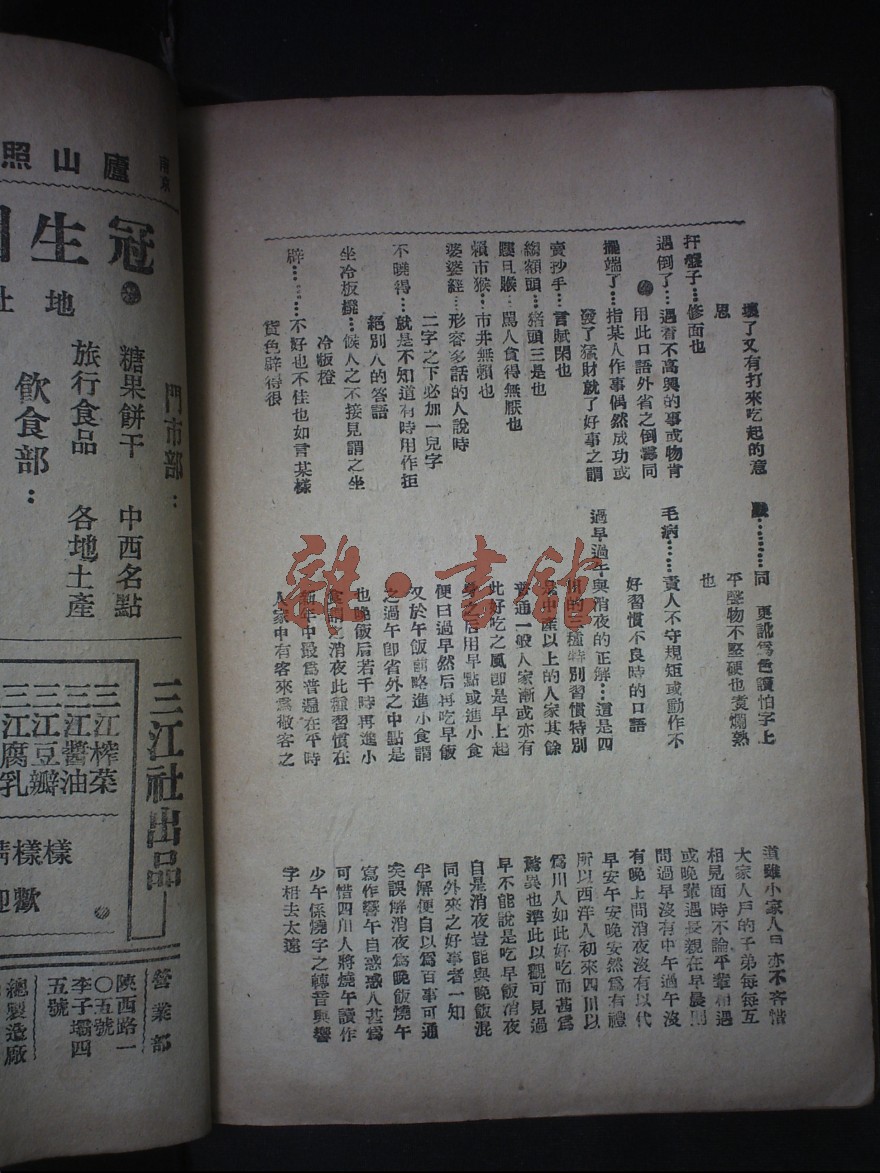 壞了又有打來吃起的意
思
扞盤子…修面也
遇倒了…遇着不高興的事或物肯
用此口語外省之倒霉同
擺端了…指某人作事偶然成功或
發了猛財就了好事之謂
賣抄手…言賦閑也
綹額頭…猪頭三是也
罵人食得無厭也
賴市猴…市井無賴也
婆婆經…形容多話的人說時
二字之下必加一兒字
不曉得…就是不知道有時用作拒
絕別人的答語
坐冷板櫈…候人之不接見謂之坐
冷板橙
辟……不好也不佳也如言某樣
貨色辟得很
同 更訛爲色讀怕字上
平聲物不堅硬也煑爛熟
也
毛病……責人不守規矩或動作不
好習慣不良時的口語
過早過午與消夜的正解…這是四
川的三種特別習慣特別
是中產以上的人家其餘
普通一般人家漸或亦有
此好吃之風卽是早上起
身之后用早點或進小食
便曰過早然后再吃早飯
又於午飯前略進小食謂
之過午卽省外之中點是
也晚飯后若干時再進小
食謂之消夜此種習慣在
新年中最爲普遍在平時
人家中有客來爲敬客之
道雖小家人戶亦不吝惜
大家人戶的子弟每每互
相見面時不論平輩相遇
或晚輩遇長親在早晨則
問過早沒有中午過午沒
有晚上問消夜沒有以代
早安午安晚安然爲有禮
所以西洋人初來四川以
爲川人如此好吃而甚爲
驚異也準此以觀可見過
早不能說是吃早飯消夜
自是消夜豈能與晚飯混
同外來之好事者一知
半解便自以爲百事可通
矣誤解消夜爲晚飯燒午
寫作響午自惑惑人甚爲
可惜四川人將燒午讀作
少午係燒字之轉音與響
字相去太遠
南京
廬山照
冠生
地址
門市部：
糖果餅干 中西名點
旅行食品 各地土產
飲食部：
三江社出品
三江榨菜
三江醬油
三江豆瓣
三江腐乳
樣樣
歡迎
營業部
陝西路一
〇五號
李子壩四
五號
總製造廠
雜·書館